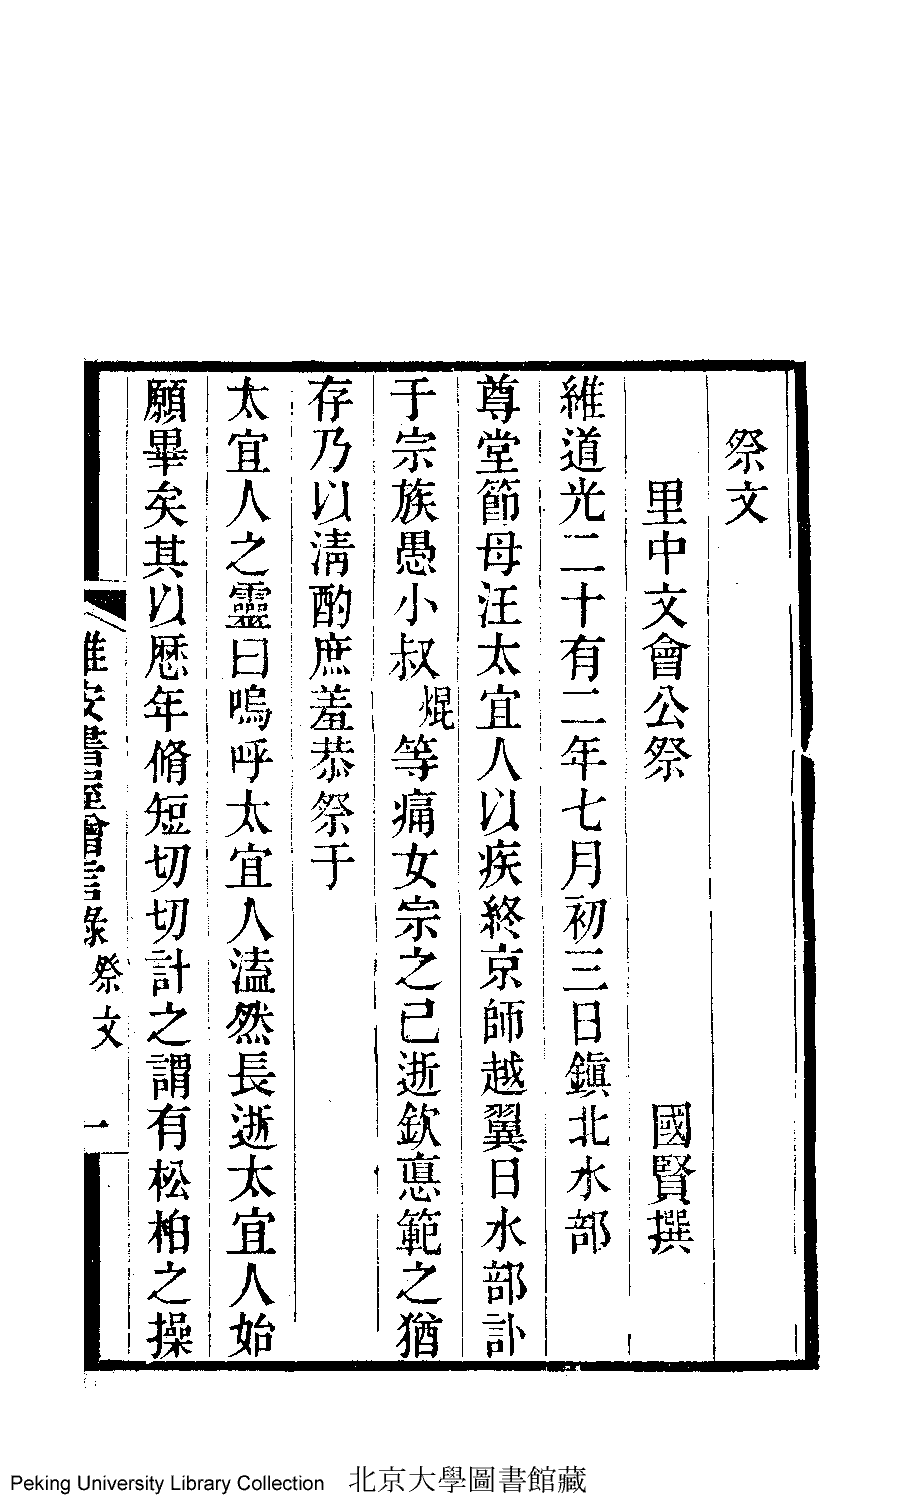 祭文
里中文會公祭 國賢撰
維道光二十有二年七月初三日鎭北水部
尊堂節母汪太宜人以疾終京師越翼日水部訃
于宗族愚小叔焜等痛女宗之已逝欽悳範之猶
存乃以淸酌庶羞恭祭于
太宜人之靈曰嗚呼太宜人溘然長逝太宜人始
願畢矣其以歷年脩短切切計之謂有松柏之操
祭文 一
Peking University Library Collection 北京大學圖書館藏